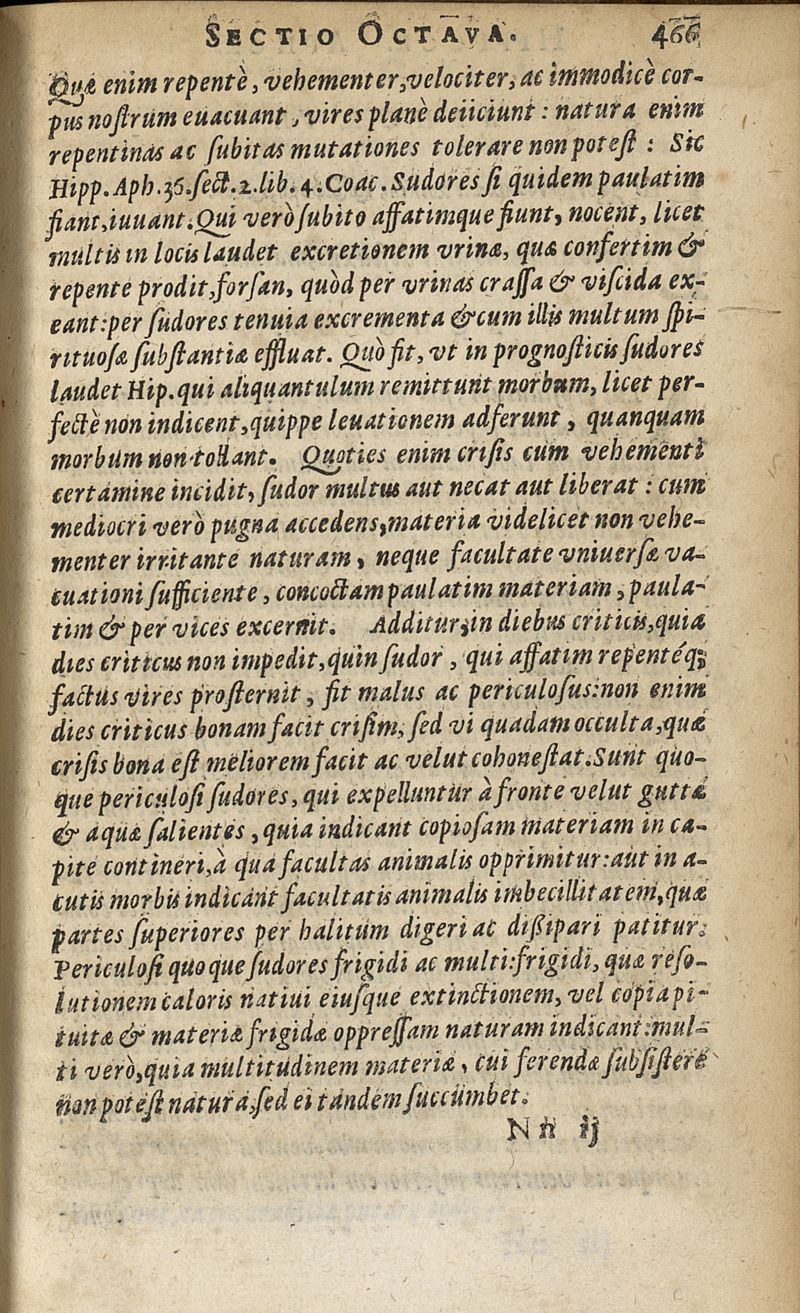 SECTIO OCTAVA. 466
Quæ enim repentè, vehementer, velociter, ac immodicè cor-
pus noſtrum euacuant, vires planè deiiciunt: natura enim
repentinas ac ſubitas mutationes tolerare non poteſt: Sic
Hipp. Aph. 36. ſect. 2. lib. 4. Coac. Sudores ſi quidem paulatim
fiant, iuuant. Qui verò ſubito affatimque fiunt, nocent, licet
multis in locis laudet excretionem vrinæ, quæ confertim &
repente prodit, forſan, quòd per vrinas craſſa & viſcida ex-
eant: per ſudores tenuia excrementa & cum illis multum ſpi-
rituoſæ ſubſtantiæ effluat. Quò fit, vt in prognoſticis ſudores
laudet Hip. qui aliquantulum remittunt morbum, licet per-
fectè non indicent, quippe leuationem adferunt, quanquam
morbum non tollant. Quoties enim criſis cum vehementi
certamine incidit, ſudor multus aut necat aut liberat: cum
mediocri verò pugna accedens, materia videlicet non vehe-
menter irritante naturam, neque facultate vniuerſæ va-
cuationi ſufficiente, concoctam paulatim materiam, paula-
tim & per vices excernit. Additur, in diebus criticis, quia
dies criticus non impedit, quin ſudor, qui affatim repentéq;
factus vires proſternit, ſit malus ac periculoſus: non enim
dies criticus bonam facit criſim, ſed vi quadam occulta, quæ
criſis bona eſt meliorem facit ac velut cohoneſtat. Sunt quo-
que periculoſi ſudores, qui expelluntur à fronte velut guttæ
& aquæ ſalientes, quia indicant copioſam materiam in ca-
pite contineri, à qua facultas animalis opprimitur: aut in a-
cutis morbis indicant facultatis animalis imbecillitatem, quæ
partes ſuperiores per halitum digeri ac diſsipari patitur.
Periculoſi quoque ſudores frigidi ac multi: frigidi, quæ reſo-
lutionem caloris natiui eiuſque extinctionem, vel copia pi-
tuitæ & materiæ frigidæ oppreſſam naturam indicant: mul-
ti verò, quia multitudinem materiæ, cui ferendæ ſubſiſtere
non poteſt natura, ſed ei tandem ſuccumbet.
Nn ij